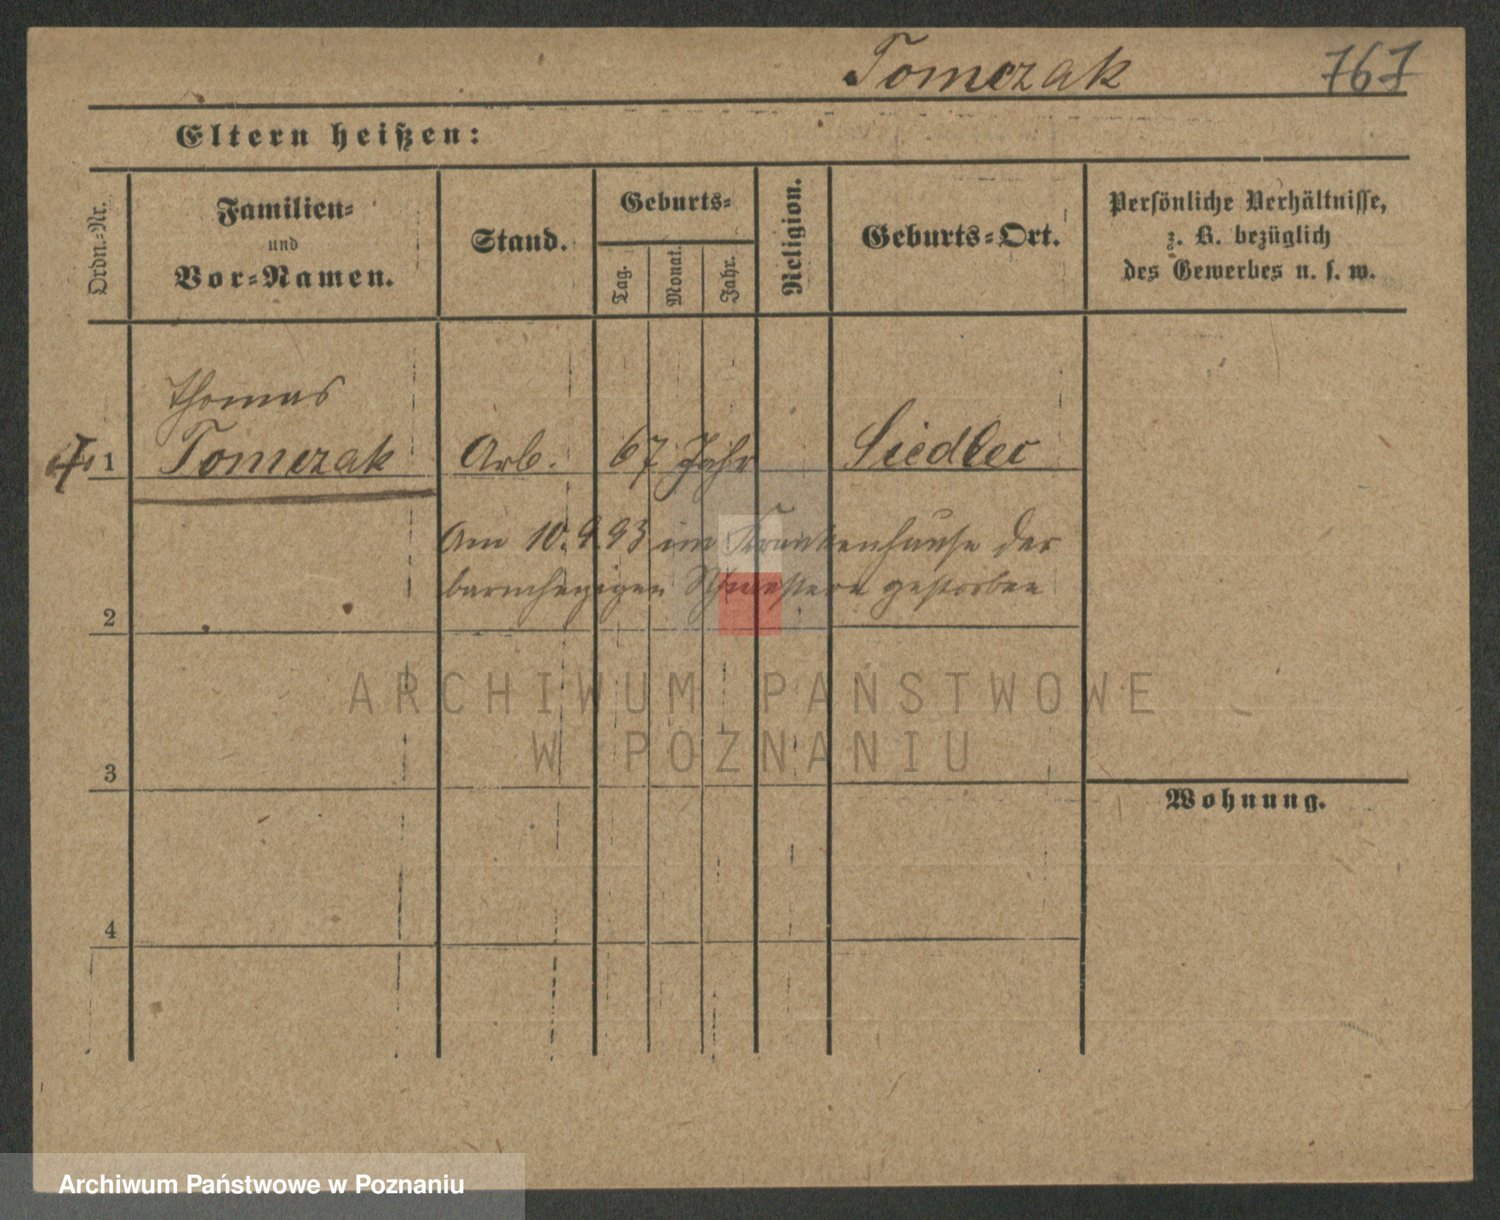 Tomczak 767
Eltern heißen:
Ordn.-Nr.
Familien-
und
Vor-Namen.
Stand.
Geburts-
Tag.
Monat.
Jahr.
Religion.
Geburts-Ort.
Persönliche Verhältnisse,
z. B. bezüglich
des Gewerbes u. s. w.
Thomas
1 Tomczak Arb. 67 Jahr Siedlec
Am 10.9.93 im Krankenhause der
barmherzigen Schwestern gestorben
2
3
4
Wohnung.
ARCHIWUM PAŃSTWOWE
W POZNANIU
Archiwum Państwowe w Poznaniu